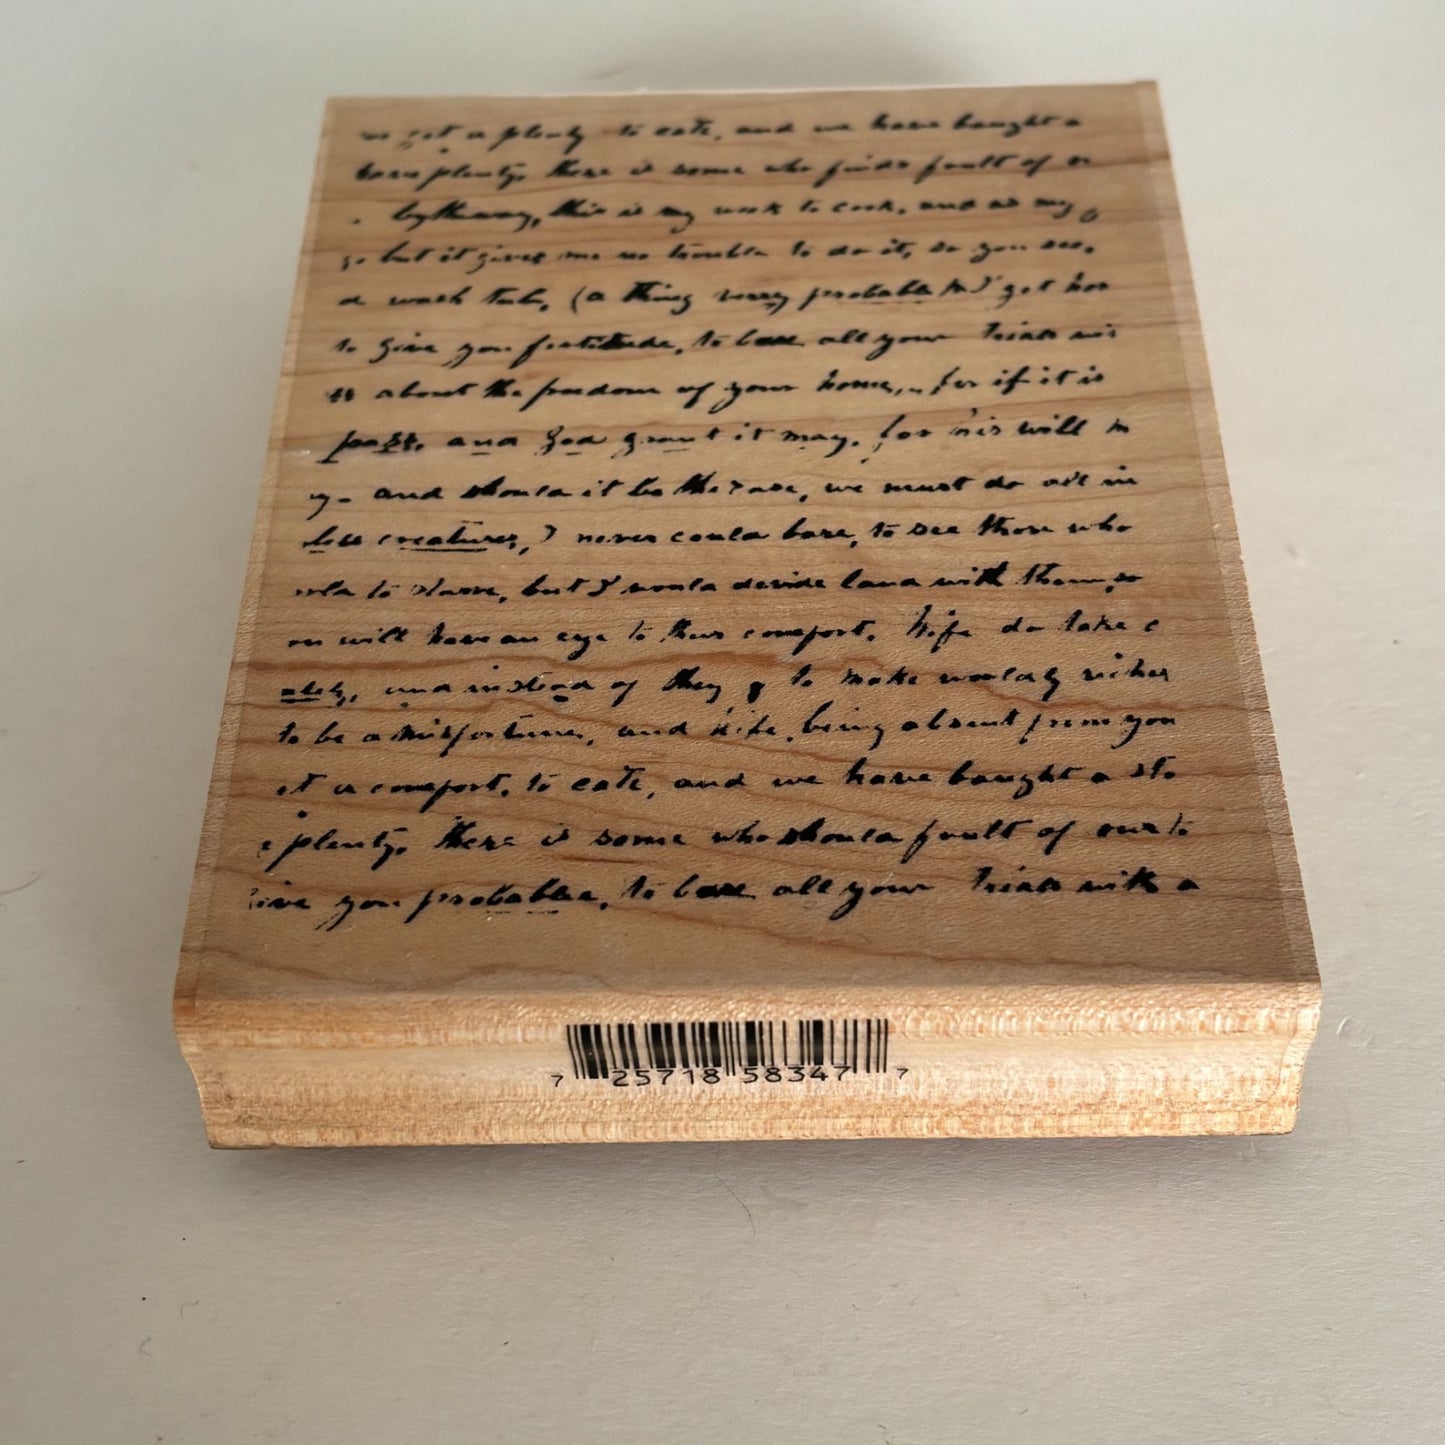 get a plenty to eate, and we have bought a
plenty, there is some who finds fault of
bytheway, this is my work to cook, and as my
but it gives me no trouble to do it, so you see,
a wash tub, (a thing verry probable) get
to give you fortitude, to bare all your trials
about the freedom of your home, for if it is
past, and God grant it may, for his will
and should it be the case, we must do all in
creatures, I never could bare, to see those who
to starve, but I would devide land with them, so
will have an eye to their comfort. Wife do take
and instead of they to make worldly riches
to be a misfortune, and Wife, being absent from you
a comfort, to eate, and we have bought a sto
plenty, there is some who should fault of our to
give you probable, to bare all your trials with a
7 25718 58347 7